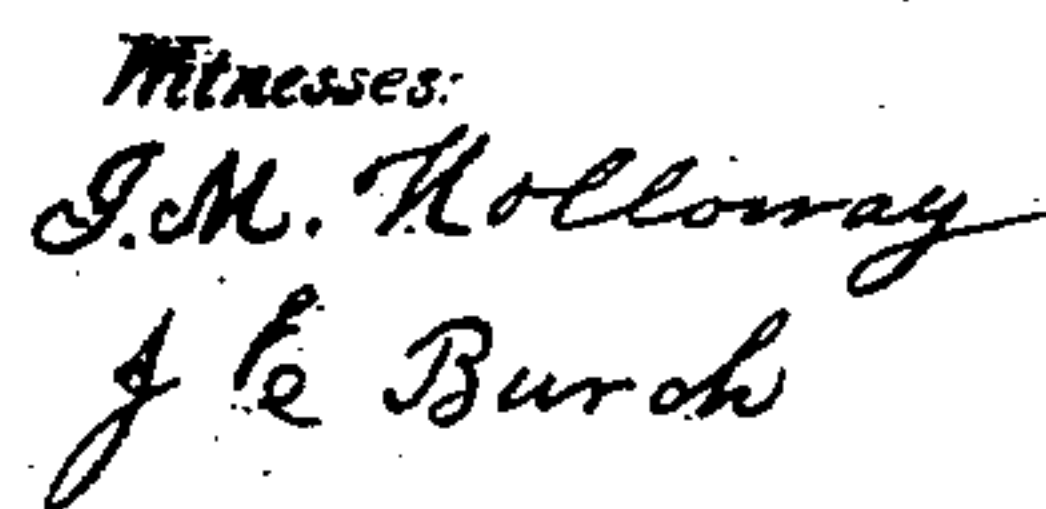 Witnesses:
J.M. Holloway
J E Burch